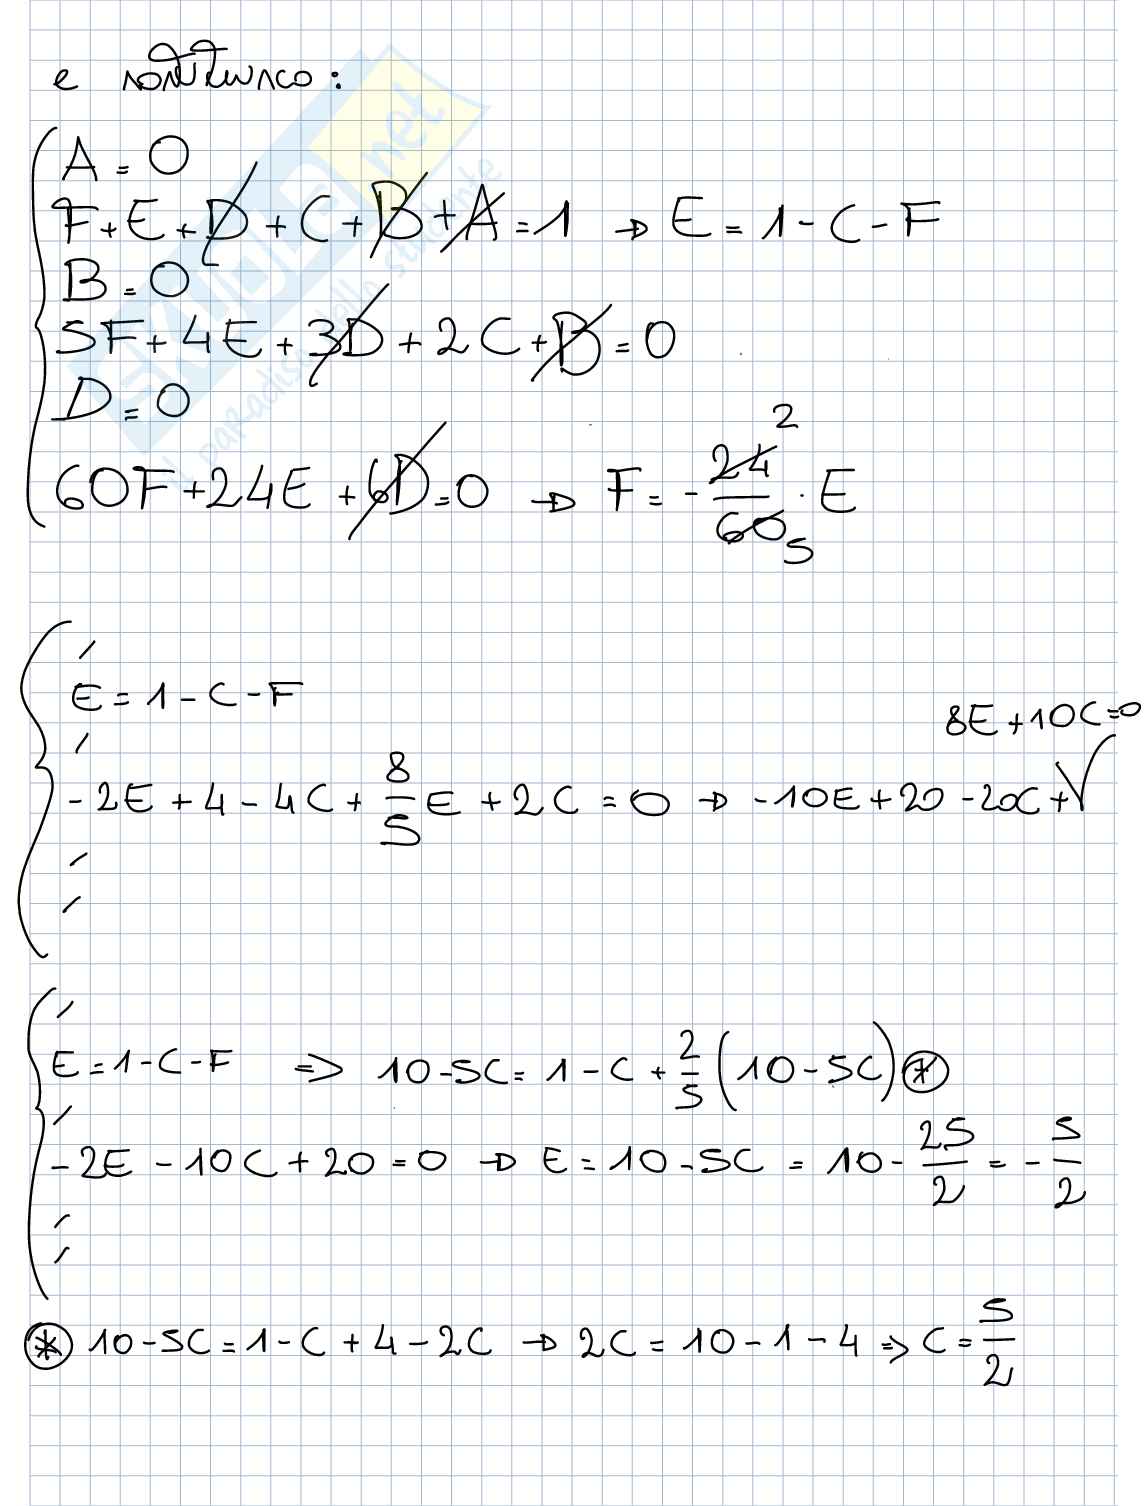 e sostituisco:
A = 0
F + E + D + C + B + A = 1 → E = 1 - C - F
B = 0
5F + 4E + 3D + 2C + B = 0
D = 0
60F + 24E + 6D = 0 → F = - 24/60 2/5 · E
E = 1 - C - F
8E + 10C = 0
- 2E + 4 - 4C + 8/5 E + 2C = 0 → -10E + 20 - 20C +
E = 1 - C - F => 10 - 5C = 1 - C + 2/5 (10 - 5C) *
- 2E - 10C + 20 = 0 → E = 10 - 5C = 10 - 25/2 = - 5/2
* 10 - 5C = 1 - C + 4 - 2C → 2C = 10 - 1 - 4 => C = 5/2
SKUOLA.net
il paradiso dello studente